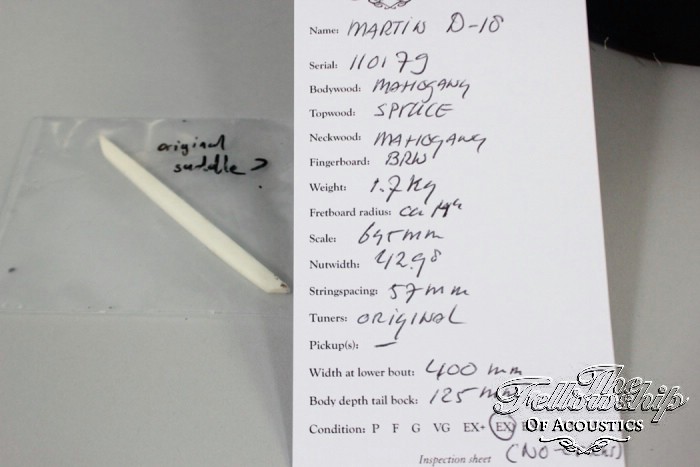 original
saddle?
Name: MARTIN D-18
Serial: 110179
Bodywood: MAHOGANY
Topwood: SPRUCE
Neckwood: MAHOGANY
Fingerboard: BRW
Weight: 1.7 Kg
Fretboard radius: ca
Scale: 645mm
Nutwidth: 42.98
Stringspacing: 57mm
Tuners: ORIGINAL
Pickup(s): –
Width at lower bout: 400 mm
Body depth tail bock: 125 mm
Condition: P F G VG EX+ EX
Inspection sheet
The
Fellowship
OF ACOUSTICS